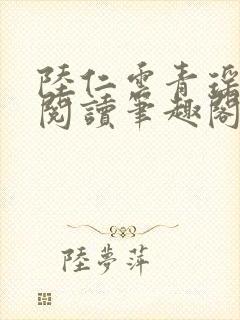 陸仁雲青瑤
閱讀筆趣閣
陸夢萍